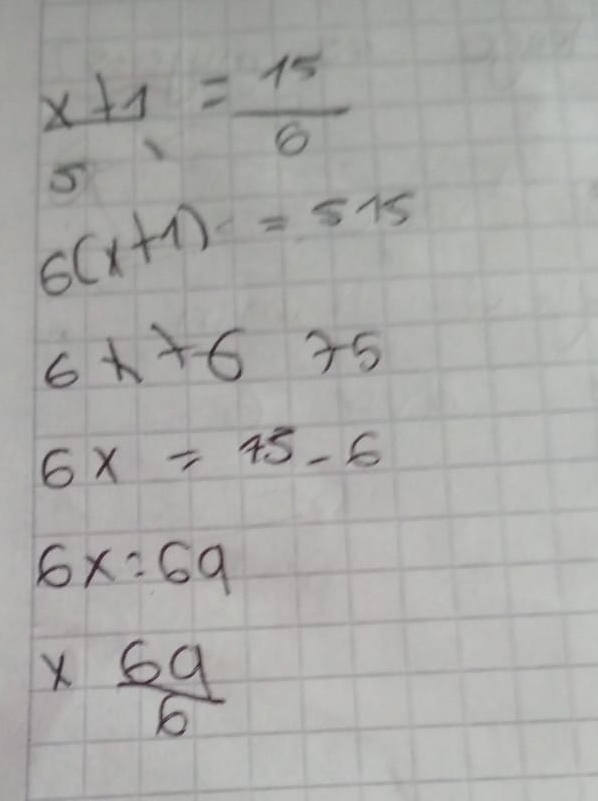 x+1 = 15
5 6
6(x+1) = 5 15
6x+6 75
6x = 75-6
6x=69
x 69
6